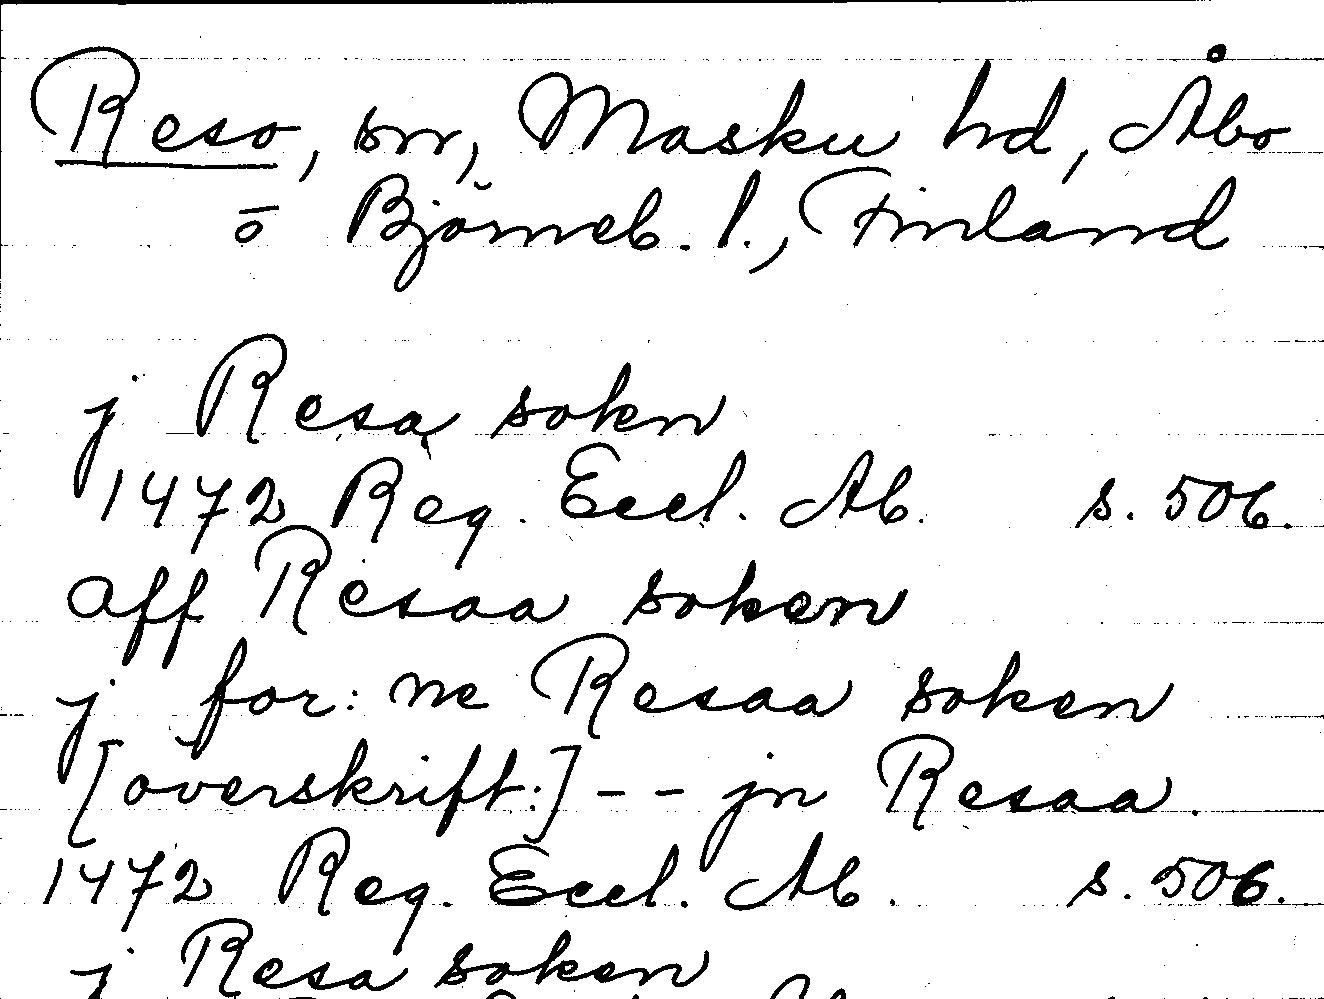 Reso, sn, Masku hd, Åbo
o Björneb. l., Finland
j Resa sokn
1472 Reg. Eccl. Ab. s. 506.
aff Resaa soken
j for: ne Resaa soken
[överskrift:] -- jn Resaa.
1472 Reg. Eccl. Ab. s. 506.
j Resa soken